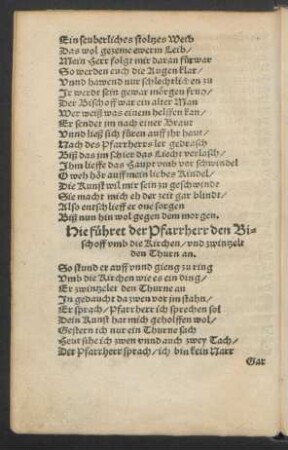 Ein seuberliches stoltzes Weib
Das wol gezeme ewerm Leib/
Mein Herr folgt mir daran fürwar
So werden euch die Augen klar/
Vnnd hawend nur schlechtlichen zu
Ir werds sein gewar morgen fruo/
Der Bischoff war ein alter Man
Wer weiß was einem helffen kan/
Er sendet im nach einer Braut
Vnnd ließ sich füren auff ihr haut/
Nach des Pfarrherrs ler gedrasch
Biß das im schier das Liecht verlasch/
Ihm lieffe das Haupt vmb vor schwindel
O weh hör auff mein liebes Kindel/
Die Kunst wil mir sein zu geschwinde
Sie macht mich eh der zeit gar blindt/
Also entschlieff er one sorgen
Biß nun hin wol gegen dem morgen.
Hie führet der Pfarrherr den Bi-
schoff vmb die Kirchen/ vnd zwinzelt
den Thurn an.
So stund er auff vnnd gieng zu ring
Vmb die Kirchen wie es ein ding/
Er zwinzelet den Thurne an
In gedaucht da zwen vor im stahn/
Er sprach/ Pfarrherr ich sprechen sol
Dein Kunst hat mich geholffen wol/
Gestern ich nur ein Thurne sach
Heut sihe ich zwen vnnd auch zwey Tach/
Der Pfarrherr sprach/ ich bin kein Narr
Gar